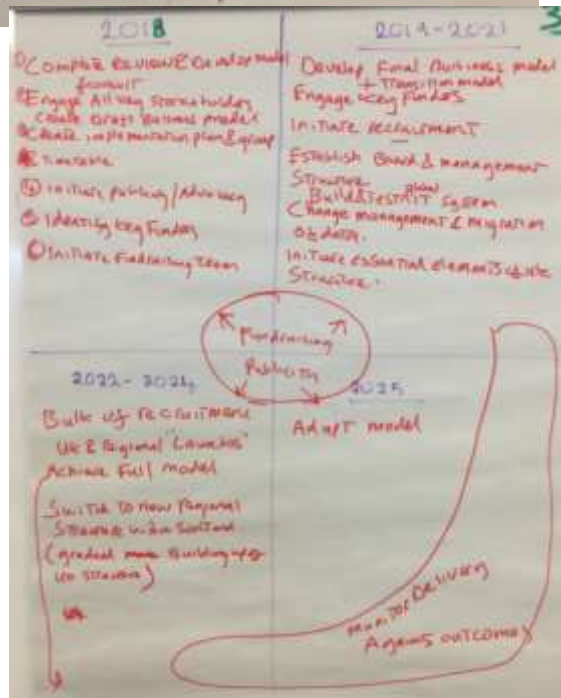 2018
Complete Review & Develop model
Engage All key stakeholders
Create Draft Business model
Create implementation plan & group
Timetable
④ initiate publicity/advocacy
⑤ Identify key Funders
⑥ Initiate Fundraising team
2019-2021
Develop Final Business model
+ Transition model
Engage key Funders
Initiate recruitment
Establish Board & management
Structure
Build & Test IT system
Change management & migration
of data.
Initiate essential elements of
Structure.
Fundraising
Publicity
2022-2024
Bulk of recruitment
UK & Regional "Launches"
Achieve Full model
Switch to new Regional
Structure within Scotland
(gradual building up of
UK structure)
2025
Adapt model
Monitor Delivery
Against outcomes